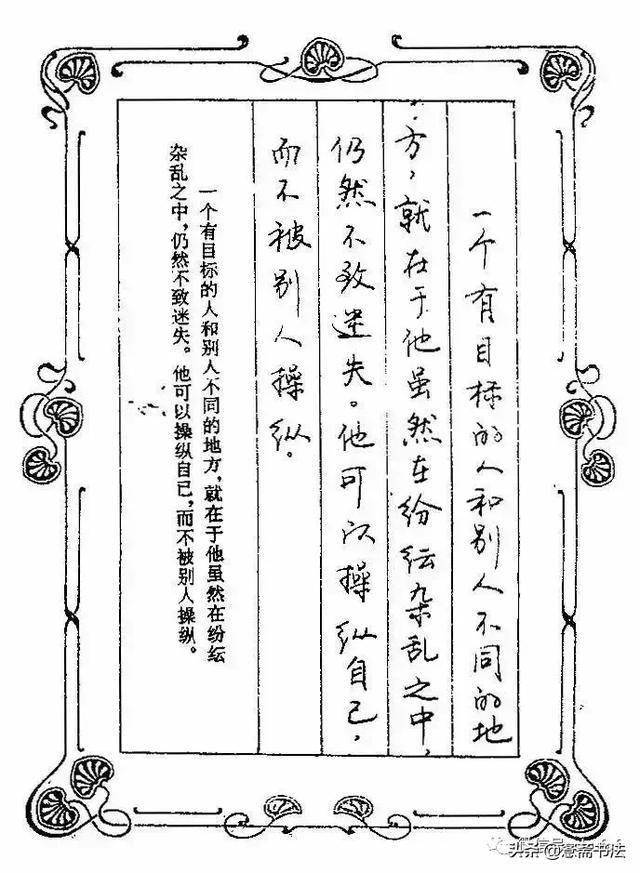 一个有目标的人和别人不同的地
方，就在于他虽然在纷纭杂乱之中，
仍然不致迷失。他可以操纵自己，
而不被别人操纵。
一个有目标的人和别人不同的地方，就在于他虽然在纷纭
杂乱之中，仍然不致迷失。他可以操纵自己，而不被别人操纵。